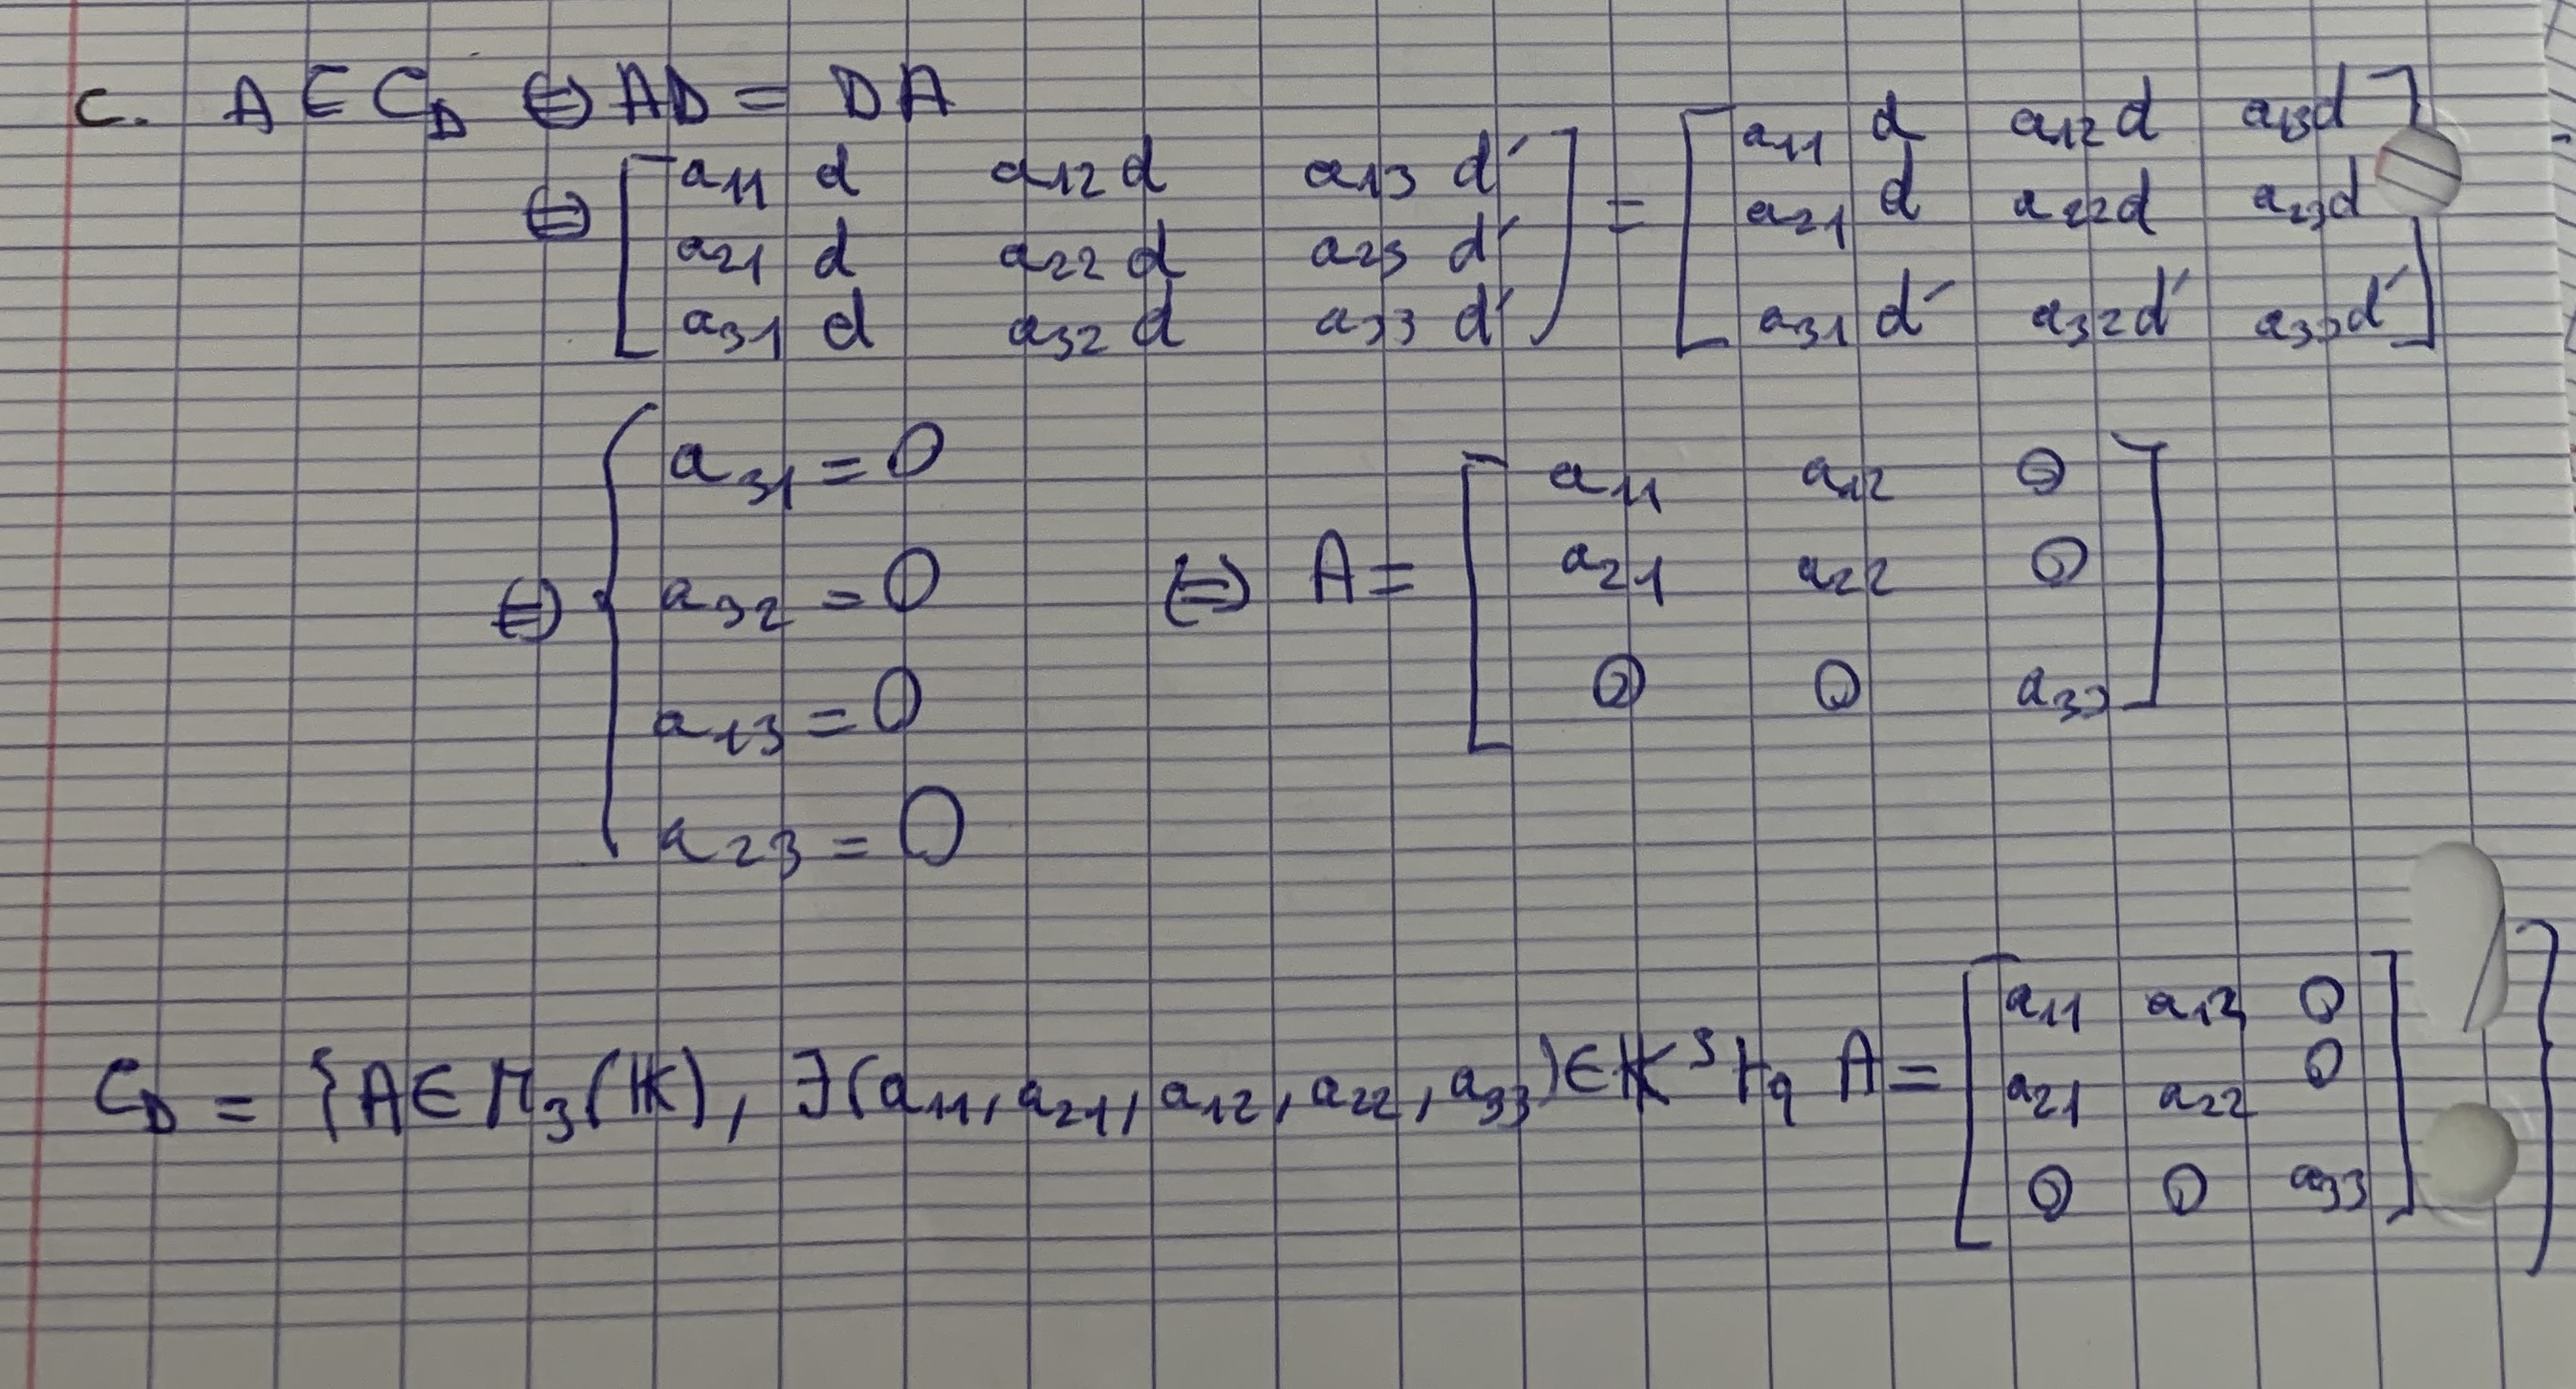 c. A ∈ C_D ⇔ AD = DA
⇔ [ a₁₁ d  a₁₂ d  a₁₃ d′ ; a₂₁ d  a₂₂ d  a₂₃ d′ ; a₃₁ d  a₃₂ d  a₃₃ d′ ] = [ a₁₁ d  a₁₂ d  a₁₃ d ; a₂₁ d  a₂₂ d  a₂₃ d ; a₃₁ d′  a₃₂ d′  a₃₃ d′ ]
⇔ { a₃₁ = 0
a₃₂ = 0
a₁₃ = 0
a₂₃ = 0
⇔ A = [ a₁₁  a₁₂  0 ; a₂₁  a₂₂  0 ; 0  0  a₃₃ ]
C_D = { A ∈ M₃(𝕂), ∃(a₁₁, a₂₁, a₁₂, a₂₂, a₃₃) ∈ 𝕂⁵ tq A = [ a₁₁  a₁₂  0 ; a₂₁  a₂₂  0 ; 0  0  a₃₃ ] }